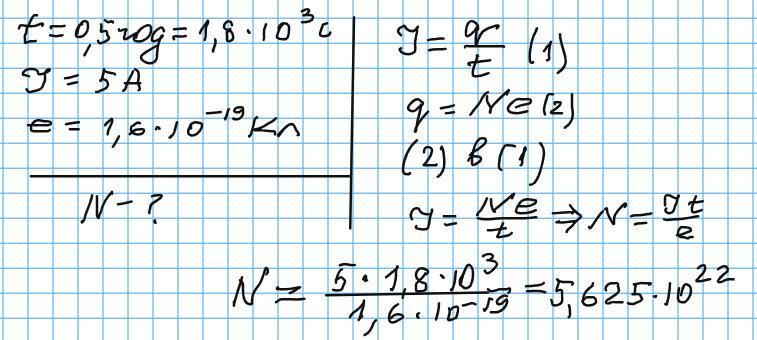 t = 0,5 год = 1,8 · 10³ с
I = 5 А
e = 1,6 · 10⁻¹⁹ Кл
N - ?
I = q/t (1)
q = Ne (2)
(2) в (1)
I = Ne/t ⇒ N = It/e
N = 5 · 1,8 · 10³ / 1,6 · 10⁻¹⁹ = 5,625 · 10²²